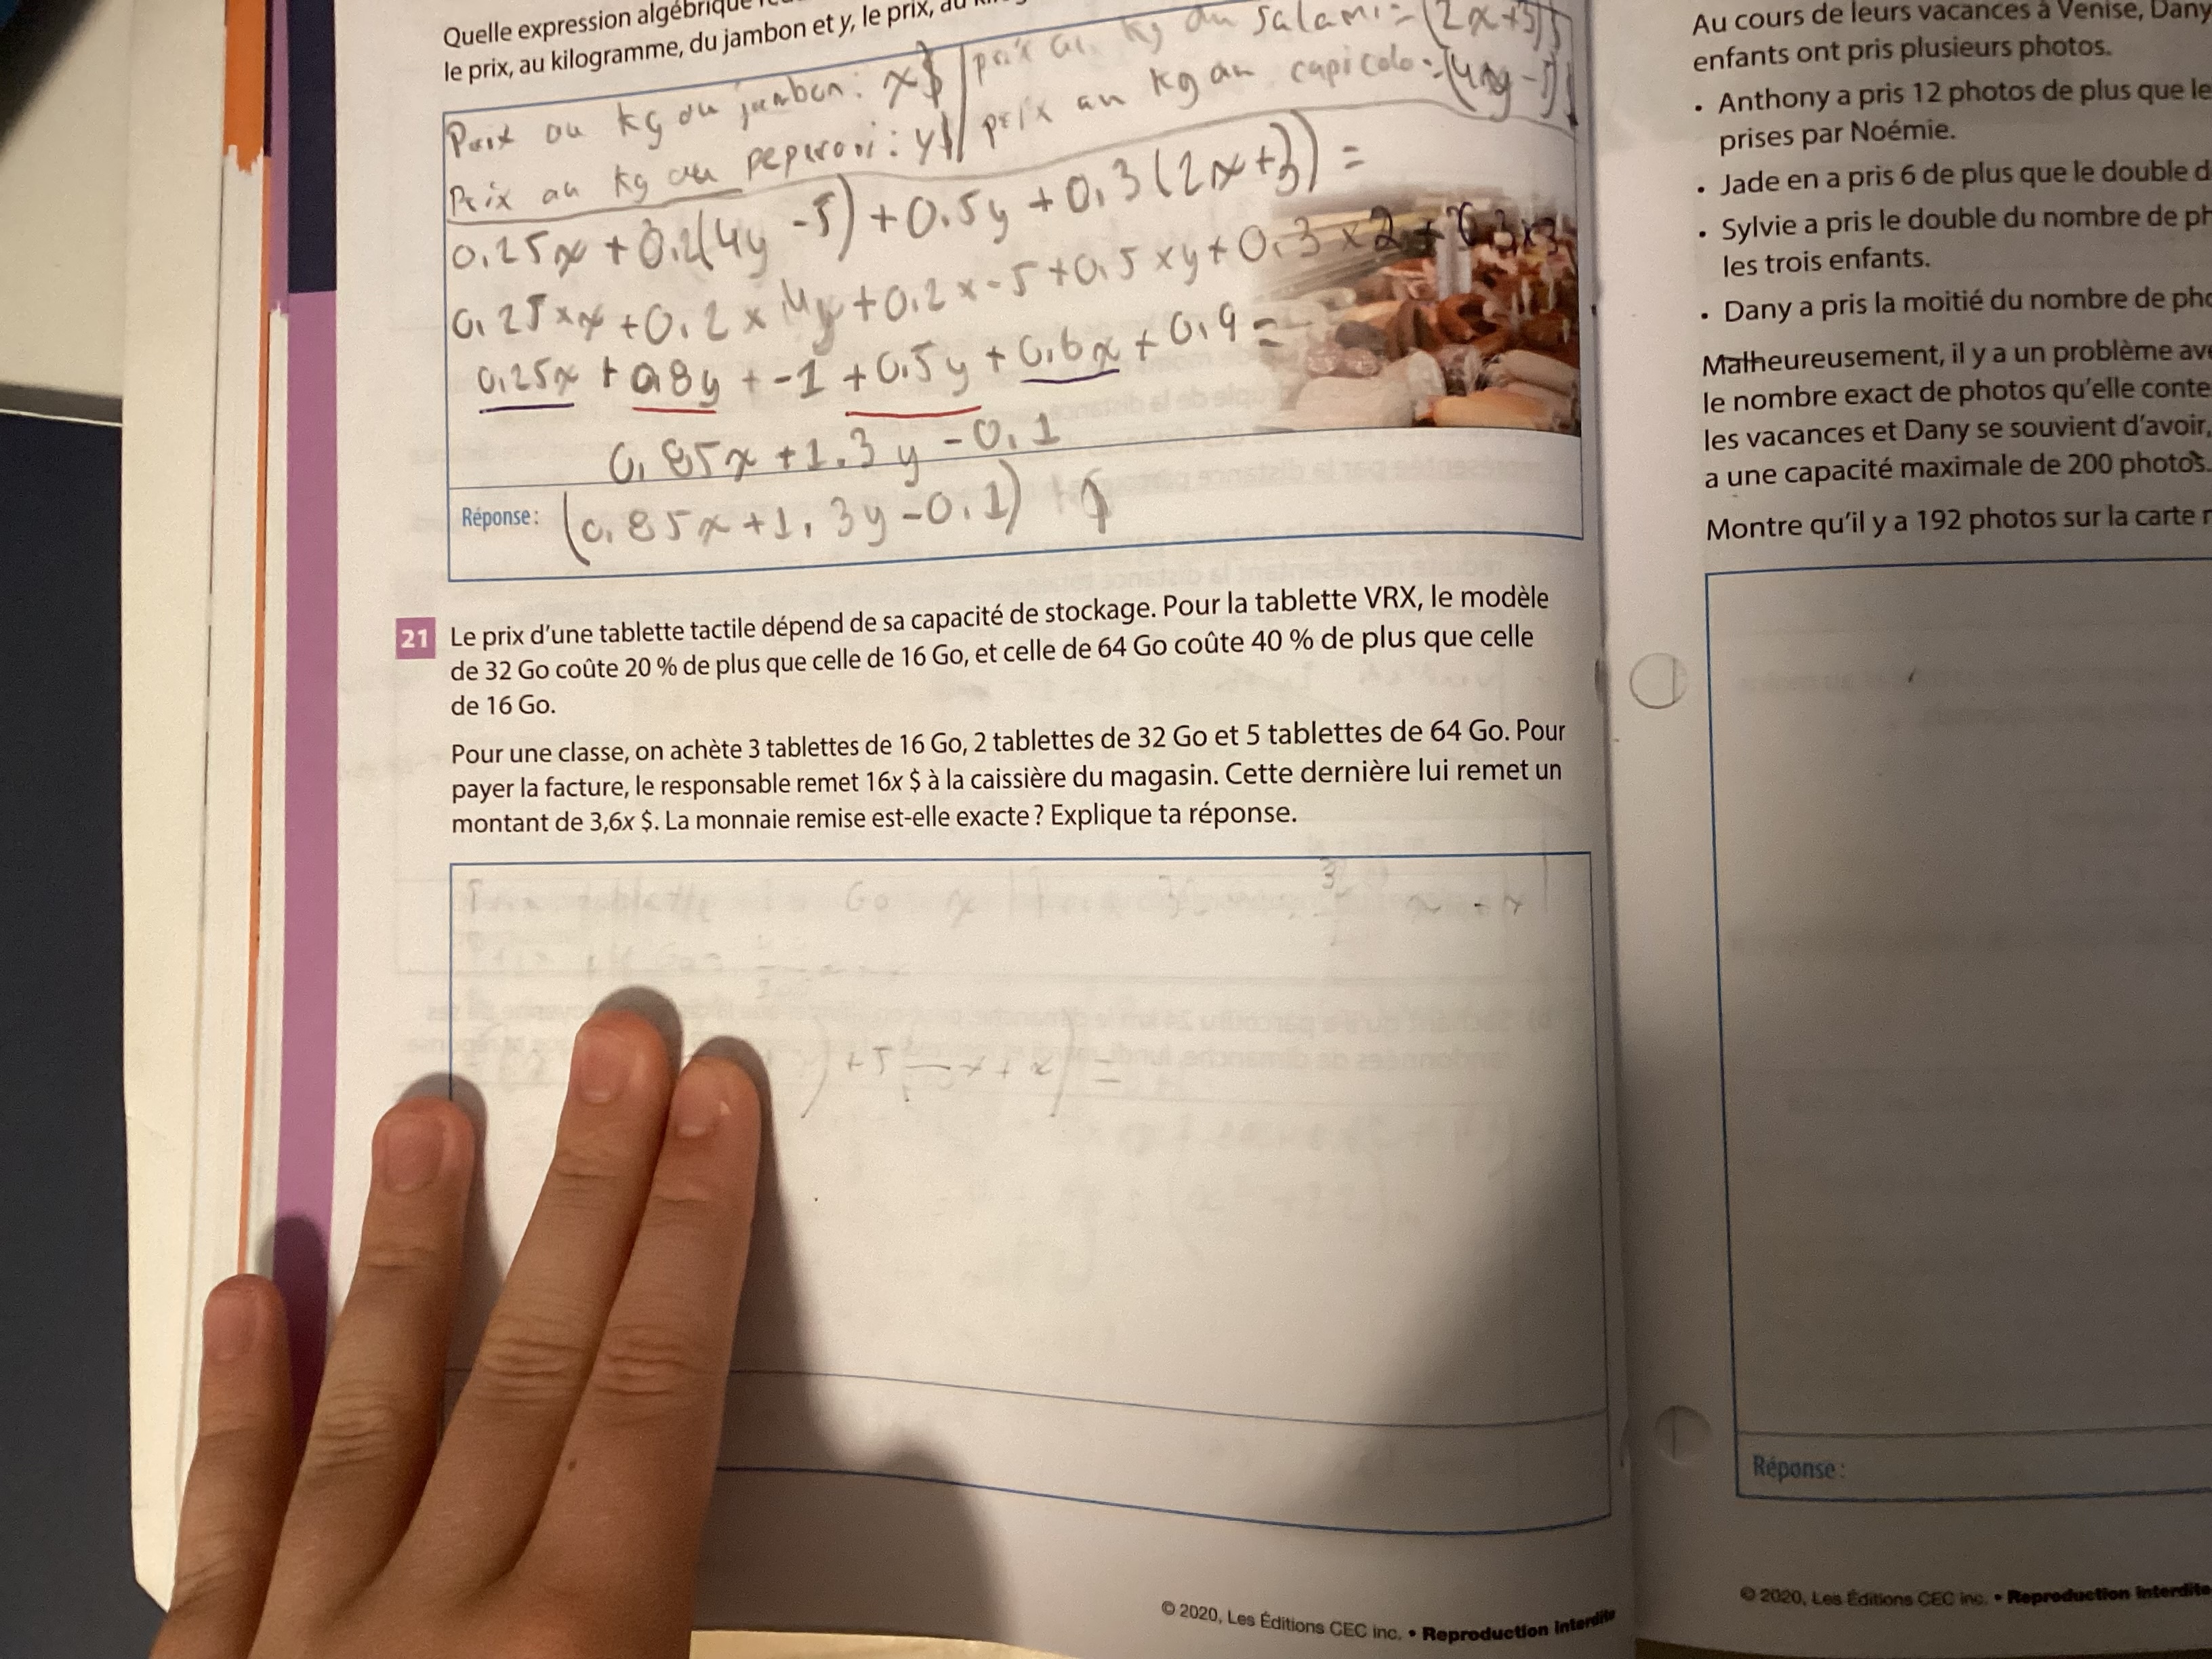 Quelle expression algébrique
le prix, au kilogramme, du jambon et y, le prix, au
Prix au kg du jambon : x$ | prix au kg du salami = (2x+3)$
Prix au kg du peperoni : y$ | prix au kg du capicolo = (4y-5)$
0,25x + 0,2(4y -5) + 0.5y + 0,3(2x+3) =
0,25×x + 0,2 × 4y + 0,2 × -5 + 0,5 × y + 0,3 × 2 + 0,3×3
0,25x + 0,8y + -1 + 0,5y + 0,6x + 0,9 =
0,85x + 1,3y - 0,1
Réponse : (0,85x + 1,3y - 0,1) $
21 Le prix d'une tablette tactile dépend de sa capacité de stockage. Pour la tablette VRX, le modèle
de 32 Go coûte 20 % de plus que celle de 16 Go, et celle de 64 Go coûte 40 % de plus que celle
de 16 Go.
Pour une classe, on achète 3 tablettes de 16 Go, 2 tablettes de 32 Go et 5 tablettes de 64 Go. Pour
payer la facture, le responsable remet 16x $ à la caissière du magasin. Cette dernière lui remet un
montant de 3,6x $. La monnaie remise est-elle exacte ? Explique ta réponse.
© 2020, Les Éditions CEC inc. • Reproduction interdite
Au cours de leurs vacances à Venise, Dany
enfants ont pris plusieurs photos.
• Anthony a pris 12 photos de plus que le
prises par Noémie.
• Jade en a pris 6 de plus que le double d
• Sylvie a pris le double du nombre de ph
les trois enfants.
• Dany a pris la moitié du nombre de pho
Malheureusement, il y a un problème ave
le nombre exact de photos qu'elle conte
les vacances et Dany se souvient d'avoir,
a une capacité maximale de 200 photos.
Montre qu'il y a 192 photos sur la carte
Réponse :
© 2020, Les Éditions CEC inc. • Reproduction interdite